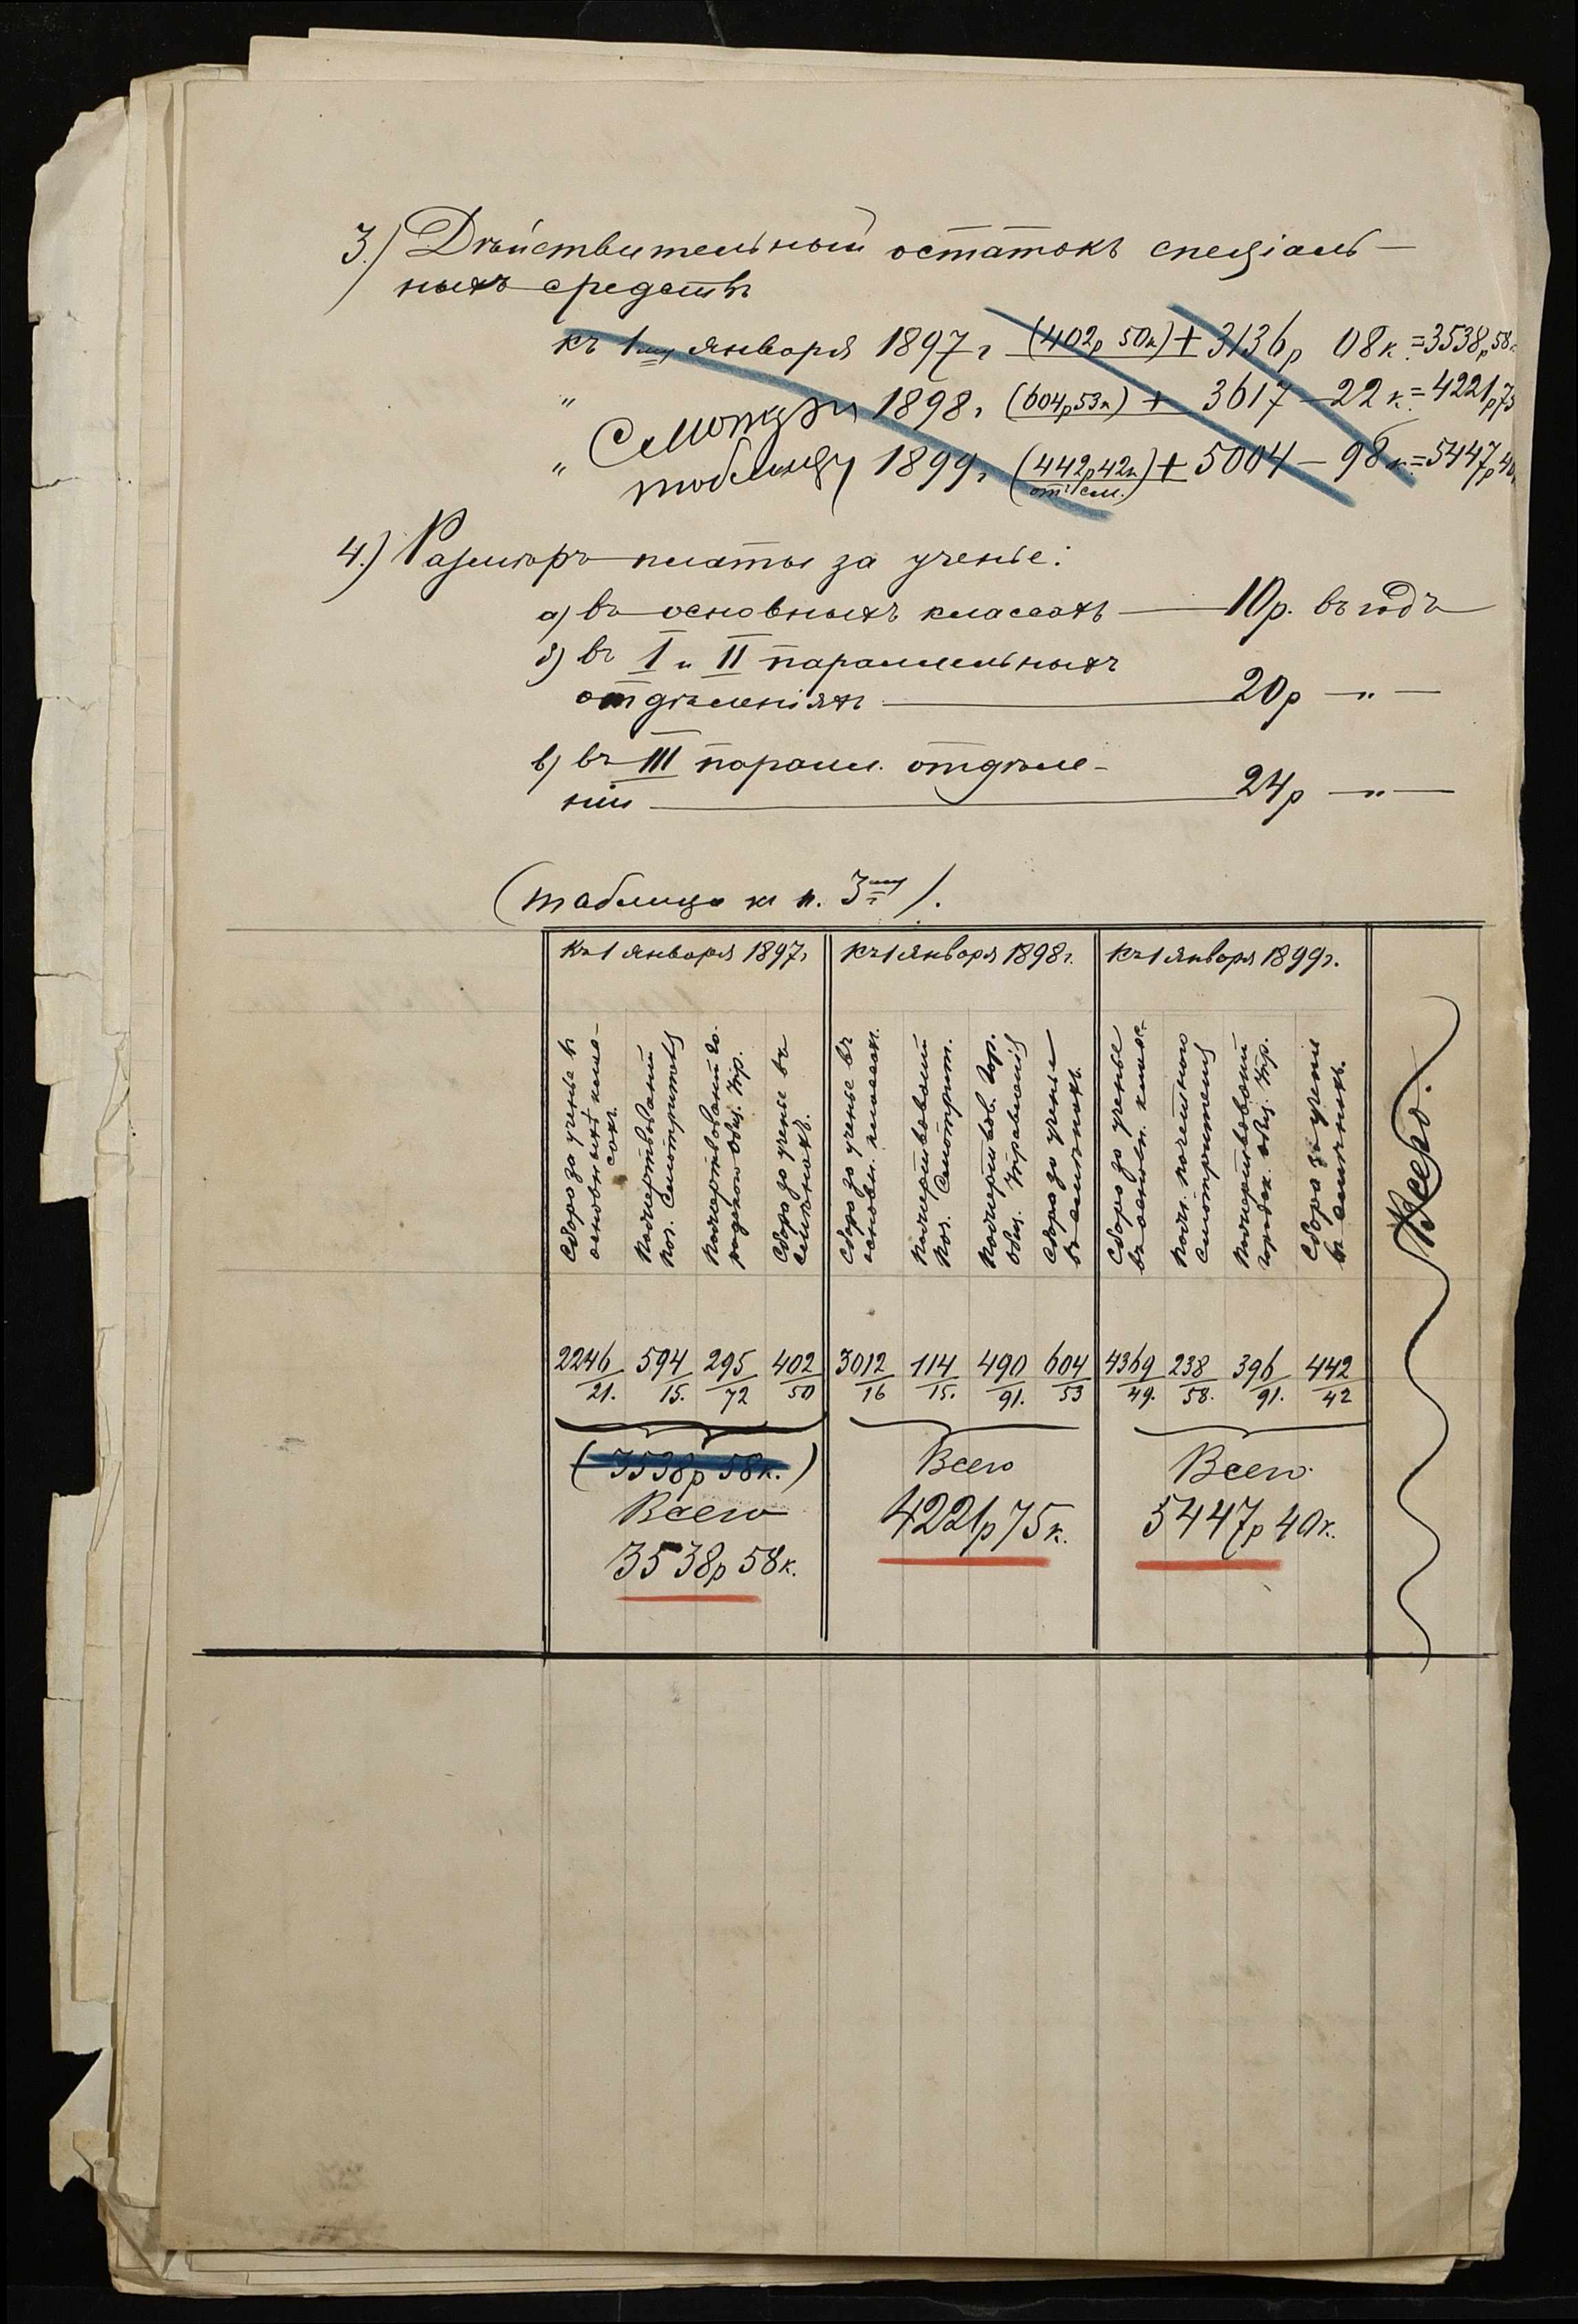 3.) Дѣйствительный остатокъ спеціаль-
ныхъ средствъ
къ 1му января 1897 г (402р 50к) + 3136р 08к. = 3538р 58к
" 1898 г (604р 53к) + 3617 — 22 к. = 4221р 75
Смотри
" 1899 г (442р 42к) + 5004 — 98 к. = 5447р 40
таблицу
4.) Размѣръ платы за ученье:
а) въ основныхъ классахъ — 10р. въ годъ
б) въ I и II параллельныхъ
отдѣленіяхъ — 20р — " —
в) въ III паралл. отдѣле-
ніи — 24р — " —
(таблица къ п. 3му).
Къ 1 января 1897 г
Къ 1 января 1898 г.
Къ 1 января 1899 г.
Сбора за ученье въ
основныхъ клас-
сахъ
Пожертвованій
поч. Смотрителя
Пожертвованій го-
родского Общ. Упр.
Сбора за ученье въ
смѣнахъ.
Сбора за ученье въ
основн. классах.
Пожертвованій
поч. Смотрит.
Пожертвов. Гор.
Общ. Управленія
Сбора за ученье
въ смѣнахъ
Сбора за ученье
въ основн. класс.
Пож. почетного
смотрителя
Пожертвованій
городск. общ. Упр.
Сбора за ученье
въ смѣнахъ.
Всего.
2246/21. 594/15. 295/72 402/50 3012/16 114/15. 490/91. 604/53 4369/49. 238/58. 396/91. 442/42
(3538р 58к.)
Всего
3538р 58к.
Всего
4221р 75к.
Всего
5447р 40к.